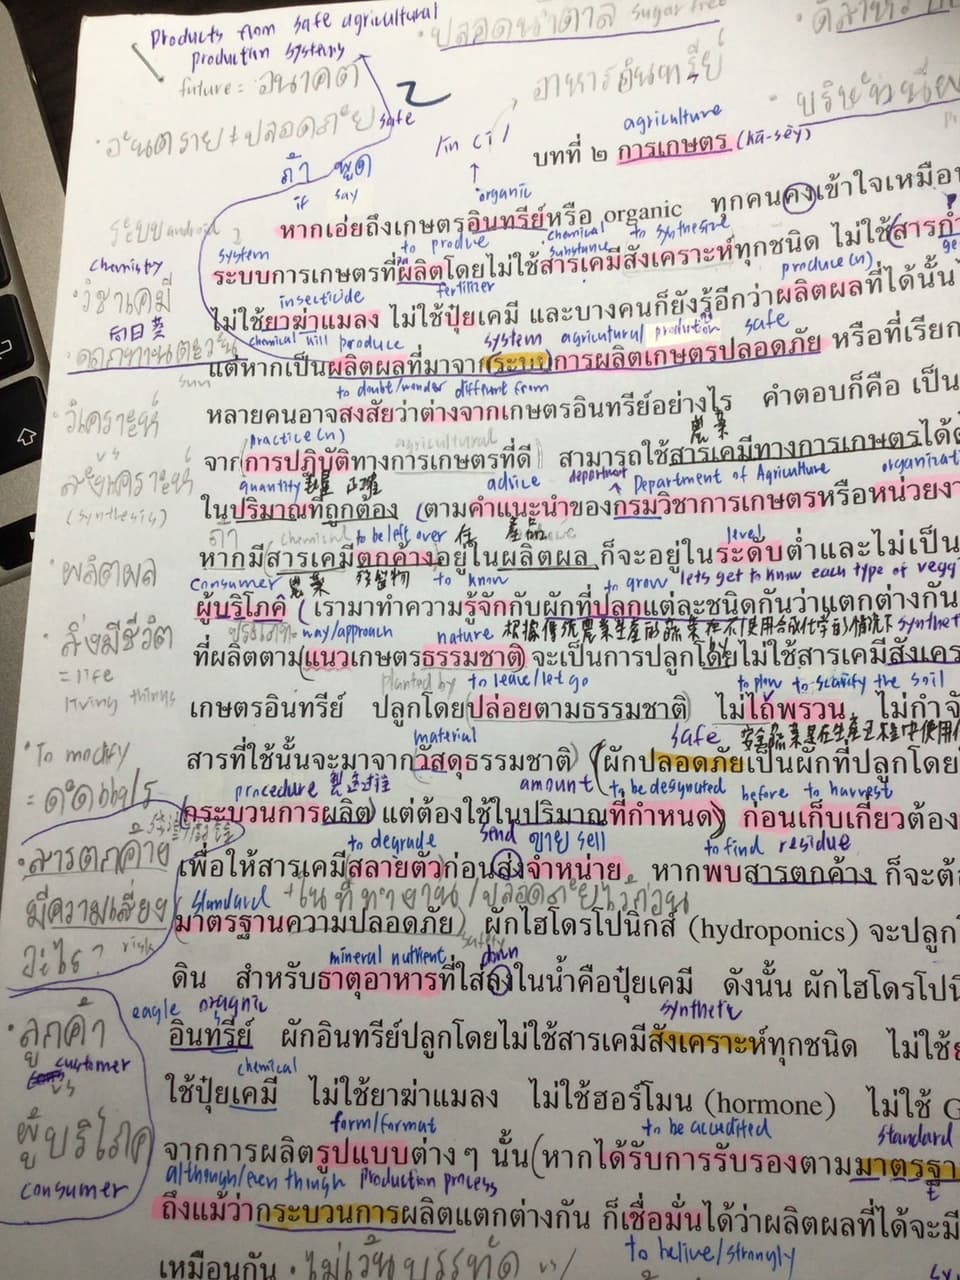 Products from safe agricultural
production systems
ปลอดน้ำตาล sugar free
future = อนาคต
อาหารอินทรีย์
อันตราย ≠ ปลอดภัย safe
agriculture
บทที่ ๒ การเกษตร (kā-sèy)
ถ้า พูด
if say
organic
หากเอ่ยถึงเกษตรอินทรีย์หรือ organic ทุกคนคงเข้าใจเหมือน
ระบบ android
system to produce chemical substance to synthesize
ระบบการเกษตรที่ผลิตโดยไม่ใช้สารเคมีสังเคราะห์ทุกชนิด ไม่ใช้สารกำ
chemistry
วิชาเคมี
insecticide fertilizer produce (n)
ไม่ใช้ยาฆ่าแมลง ไม่ใช้ปุ๋ยเคมี และบางคนก็ยังรู้อีกว่าผลิตผลที่ได้นั้น
向日葵
ดอกทานตะวัน
sun
chemical will produce system agricultural production safe
แต่หากเป็นผลิตผลที่มาจากระบบการผลิตเกษตรปลอดภัย หรือที่เรียก
to doubt/wonder different from
วิเคราะห์
หลายคนอาจสงสัยว่าต่างจากเกษตรอินทรีย์อย่างไร คำตอบก็คือ เป็น
vs
practice (n) agricultural 農業
สังเคราะห์
(synthesis)
จากการปฏิบัติทางการเกษตรที่ดี สามารถใช้สารเคมีทางการเกษตรได้
quantity advice department Department of Agriculture
ในปริมาณที่ถูกต้อง (ตามคำแนะนำของกรมวิชาการเกษตรหรือหน่วยงา
to be left over 產品 level
ผลิตผล
หากมีสารเคมีตกค้างอยู่ในผลิตผล ก็จะอยู่ในระดับต่ำและไม่เป็น
consumer 農業 to know to grow lets get to know each type of
ผู้บริโภค (เรามาทำความรู้จักกับผักที่ปลูกแต่ละชนิดกันว่าแตกต่างกัน
สิ่งมีชีวิต
= life
living things
way/approach nature
ที่ผลิตตามแนวเกษตรธรรมชาติ จะเป็นการปลูกโดยไม่ใช้สารเคมีสังเคร
planted by to leave/let go to plow to scarify the soil
เกษตรอินทรีย์ ปลูกโดยปล่อยตามธรรมชาติ ไม่ไถ่พรวน ไม่กำจั
To modify
= ดัดแปร
material safe
สารที่ใช้นั้นจะมาจากวัสดุธรรมชาติ) (ผักปลอดภัยเป็นผักที่ปลูกโดย
procedure amount to be designated before to harvest
กระบวนการผลิต แต่ต้องใช้ในปริมาณที่กำหนด) ก่อนเก็บเกี่ยวต้อง
to degrade send ขาย sell to find residue
สารตกค้าง
มีความเสี่ยง
อะไร? risk
เพื่อให้สารเคมีสลายตัวก่อนส่งจำหน่าย หากพบสารตกค้าง ก็จะต้อ
standard + ในที่ทำงาน / ปลอดภัยไว้ก่อน
มาตรฐานความปลอดภัย) ผักไฮโดรโปนิกส์ (hydroponics) จะปลูก
safety
mineral nutrient down
ดิน สำหรับธาตุอาหารที่ใส่ลงในน้ำคือปุ๋ยเคมี ดังนั้น ผักไฮโดรโปนิ
eagle organic synthetic
ลูกค้า
customer
vs
ผู้บริโภค
consumer
อินทรีย์ ผักอินทรีย์ปลูกโดยไม่ใช้สารเคมีสังเคราะห์ทุกชนิด ไม่ใช้
chemical
ใช้ปุ๋ยเคมี ไม่ใช้ยาฆ่าแมลง ไม่ใช้ฮอร์โมน (hormone) ไม่ใช้ G
form/format to be accredited standard
จากการผลิตรูปแบบต่าง ๆ นั้น (หากได้รับการรับรองตามมาตรฐา
although/even though production process
ถึงแม้ว่ากระบวนการผลิตแตกต่างกัน ก็เชื่อมั่นได้ว่าผลิตผลที่ได้จะมี
to belive/strongly
เหมือนกัน ไม่เว้นบรรทัด